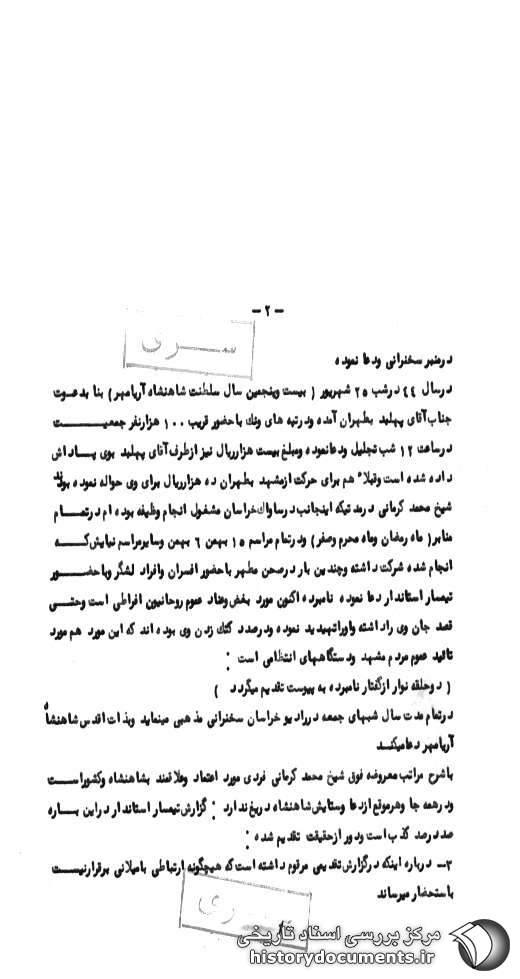 - ۲ -
ســری
درمنبر سخنرانی ودعا نموده
درسال ۴۴ درشب ۲۵ شهریور ( بیست وپنجمین سال سلطنت شاهنشاه آریامهر) بنا بدعوت
جناب آقای پهلبد بطهران آمده ودرتپه های ونك باحضور قریب ۱۰۰ هزارنفر جمعیـــــــت
درساعت ۱۲ شب تجلیل ودعانموده ومبلغ بیست هزارریال نیز ازطرف آقای پهلبد بوی پـــاداش
داده شده است وقبلاً هم برای حرکت ازمشهد بطهران ده هزارریال برای وی حواله نموده بودند
شیخ محمد کرمانی درمدتیکه اینجانب درساواك خراسان مشغول انجام وظیفه بوده ام درتمـــام
منابر( ماه رمضان وماه محرم وصفر) ودرتمام مراسم ۱۵ بهمن ۶ بهمن وسایرمراسم نیایش کـــه
انجام شده شرکت داشته وچندین بار درصحن مطهر باحضور افسران وافراد لشگر وباحضـــور
تیمسار استاندار دعا نموده نامبرده اکنون مورد بغض وعناد عموم روحانیون افراطی است وحتـــی
قصد جان وی راداشته واوراتهدید نموده ودرصدد کتك زدن وی بوده اند که این مورد هم مورد
تائید عموم مردم مشهد ودستگاههای انتظامی است :
( دوحلقه نوار ازگفتار نامبرده به پیوست تقدیم میگردد )
درتمام مدت سال شبهای جمعه دررادیو خراسان سخنرانی مذهبی مینماید وبذات اقدس شاهنشاه
آریامهر دعامیکند
باشرح مراتب معروضه فوق شیخ محمد کرمانی فردی مورد اعتماد وعلاقمند بشاهنشاه وکشوراست
ودرهمه جا وهرموقع ازدعا وستایش شاهنشاه دریغ ندارد : گزارش تیمسار استاندار دراین بـــاره
صددرصد کذب است ودور ازحقیقت تقدیم شده :
۳- درباره اینکه درگزارش تقدیمی مرقوم داشته است که هیچگونه ارتباطی بامیلانی برقرارنیست
باستحضار میرساند
ســری
مرکز بررسی اسناد تاریخی
historydocuments.ir